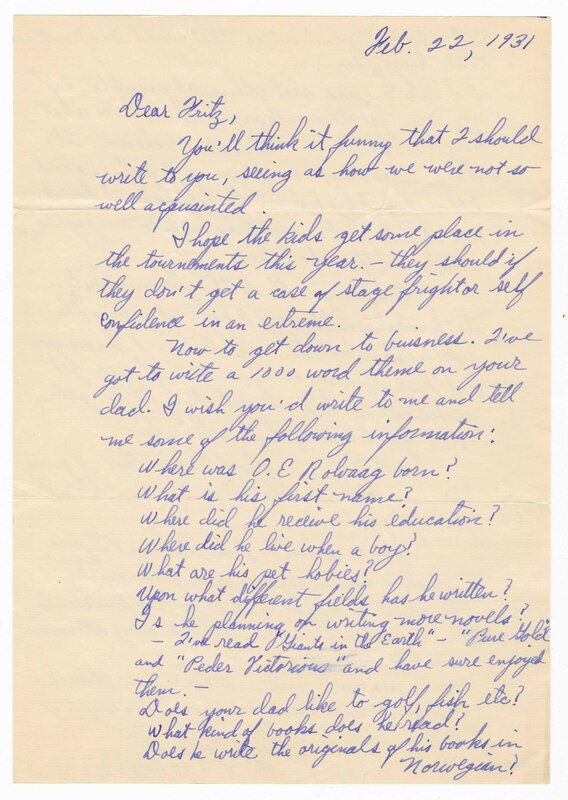 Feb. 22, 1931
Dear Fritz,
You'll think it funny that I should
write to you, seeing as how we were not so
well acquainted.
I hope the kids get some place in
the tournements this year. - they should if
they don't get a case of stage fright or self
confidence in an extreme.
Now to get down to buisness. I've
got to write a 1000 word theme on your
dad. I wish you'd write to me and tell
me some of the following information:
Where was O. E Rolvaag born?
What is his first name?
Where did he receive his education?
Where did he live when a boy?
What are his pet hobies?
Upon what different fields has he written?
Is he planning on writing more novels?
- I've read "Giants in the Earth" - "Pure Gold"
and "Peder Victorious" and have sure enjoyed
them. -
Does your dad like to golf, fish etc?
What kind of books does he read?
Does he write the originals of his books in
Norwegian?